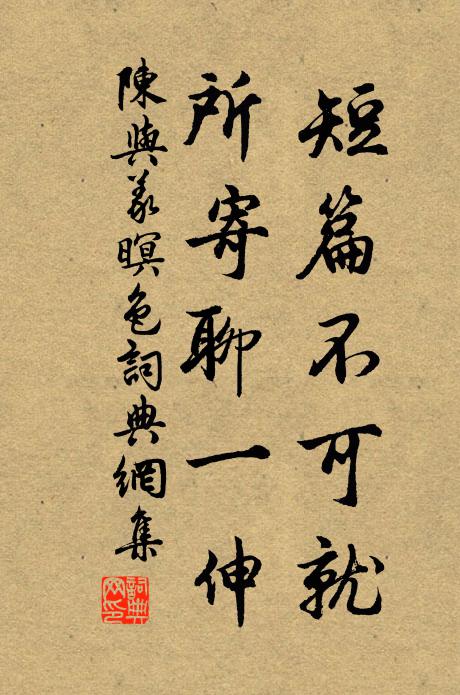 短篇不可就
所寄聊一伸
陳與義暝色詞典網集
詞典網印